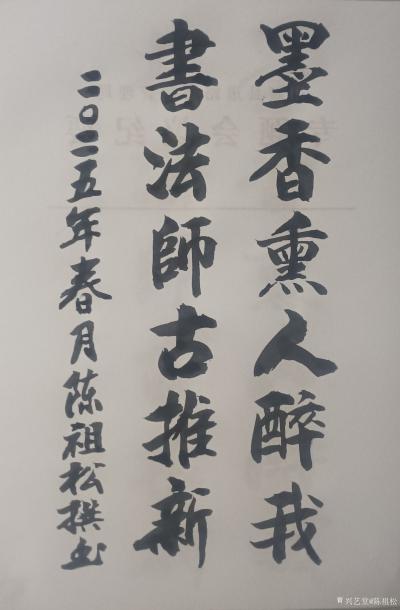 墨香熏人醉我
書法師古推新
二〇二五年春月陈祖松撰书
兴艺堂@陈祖松